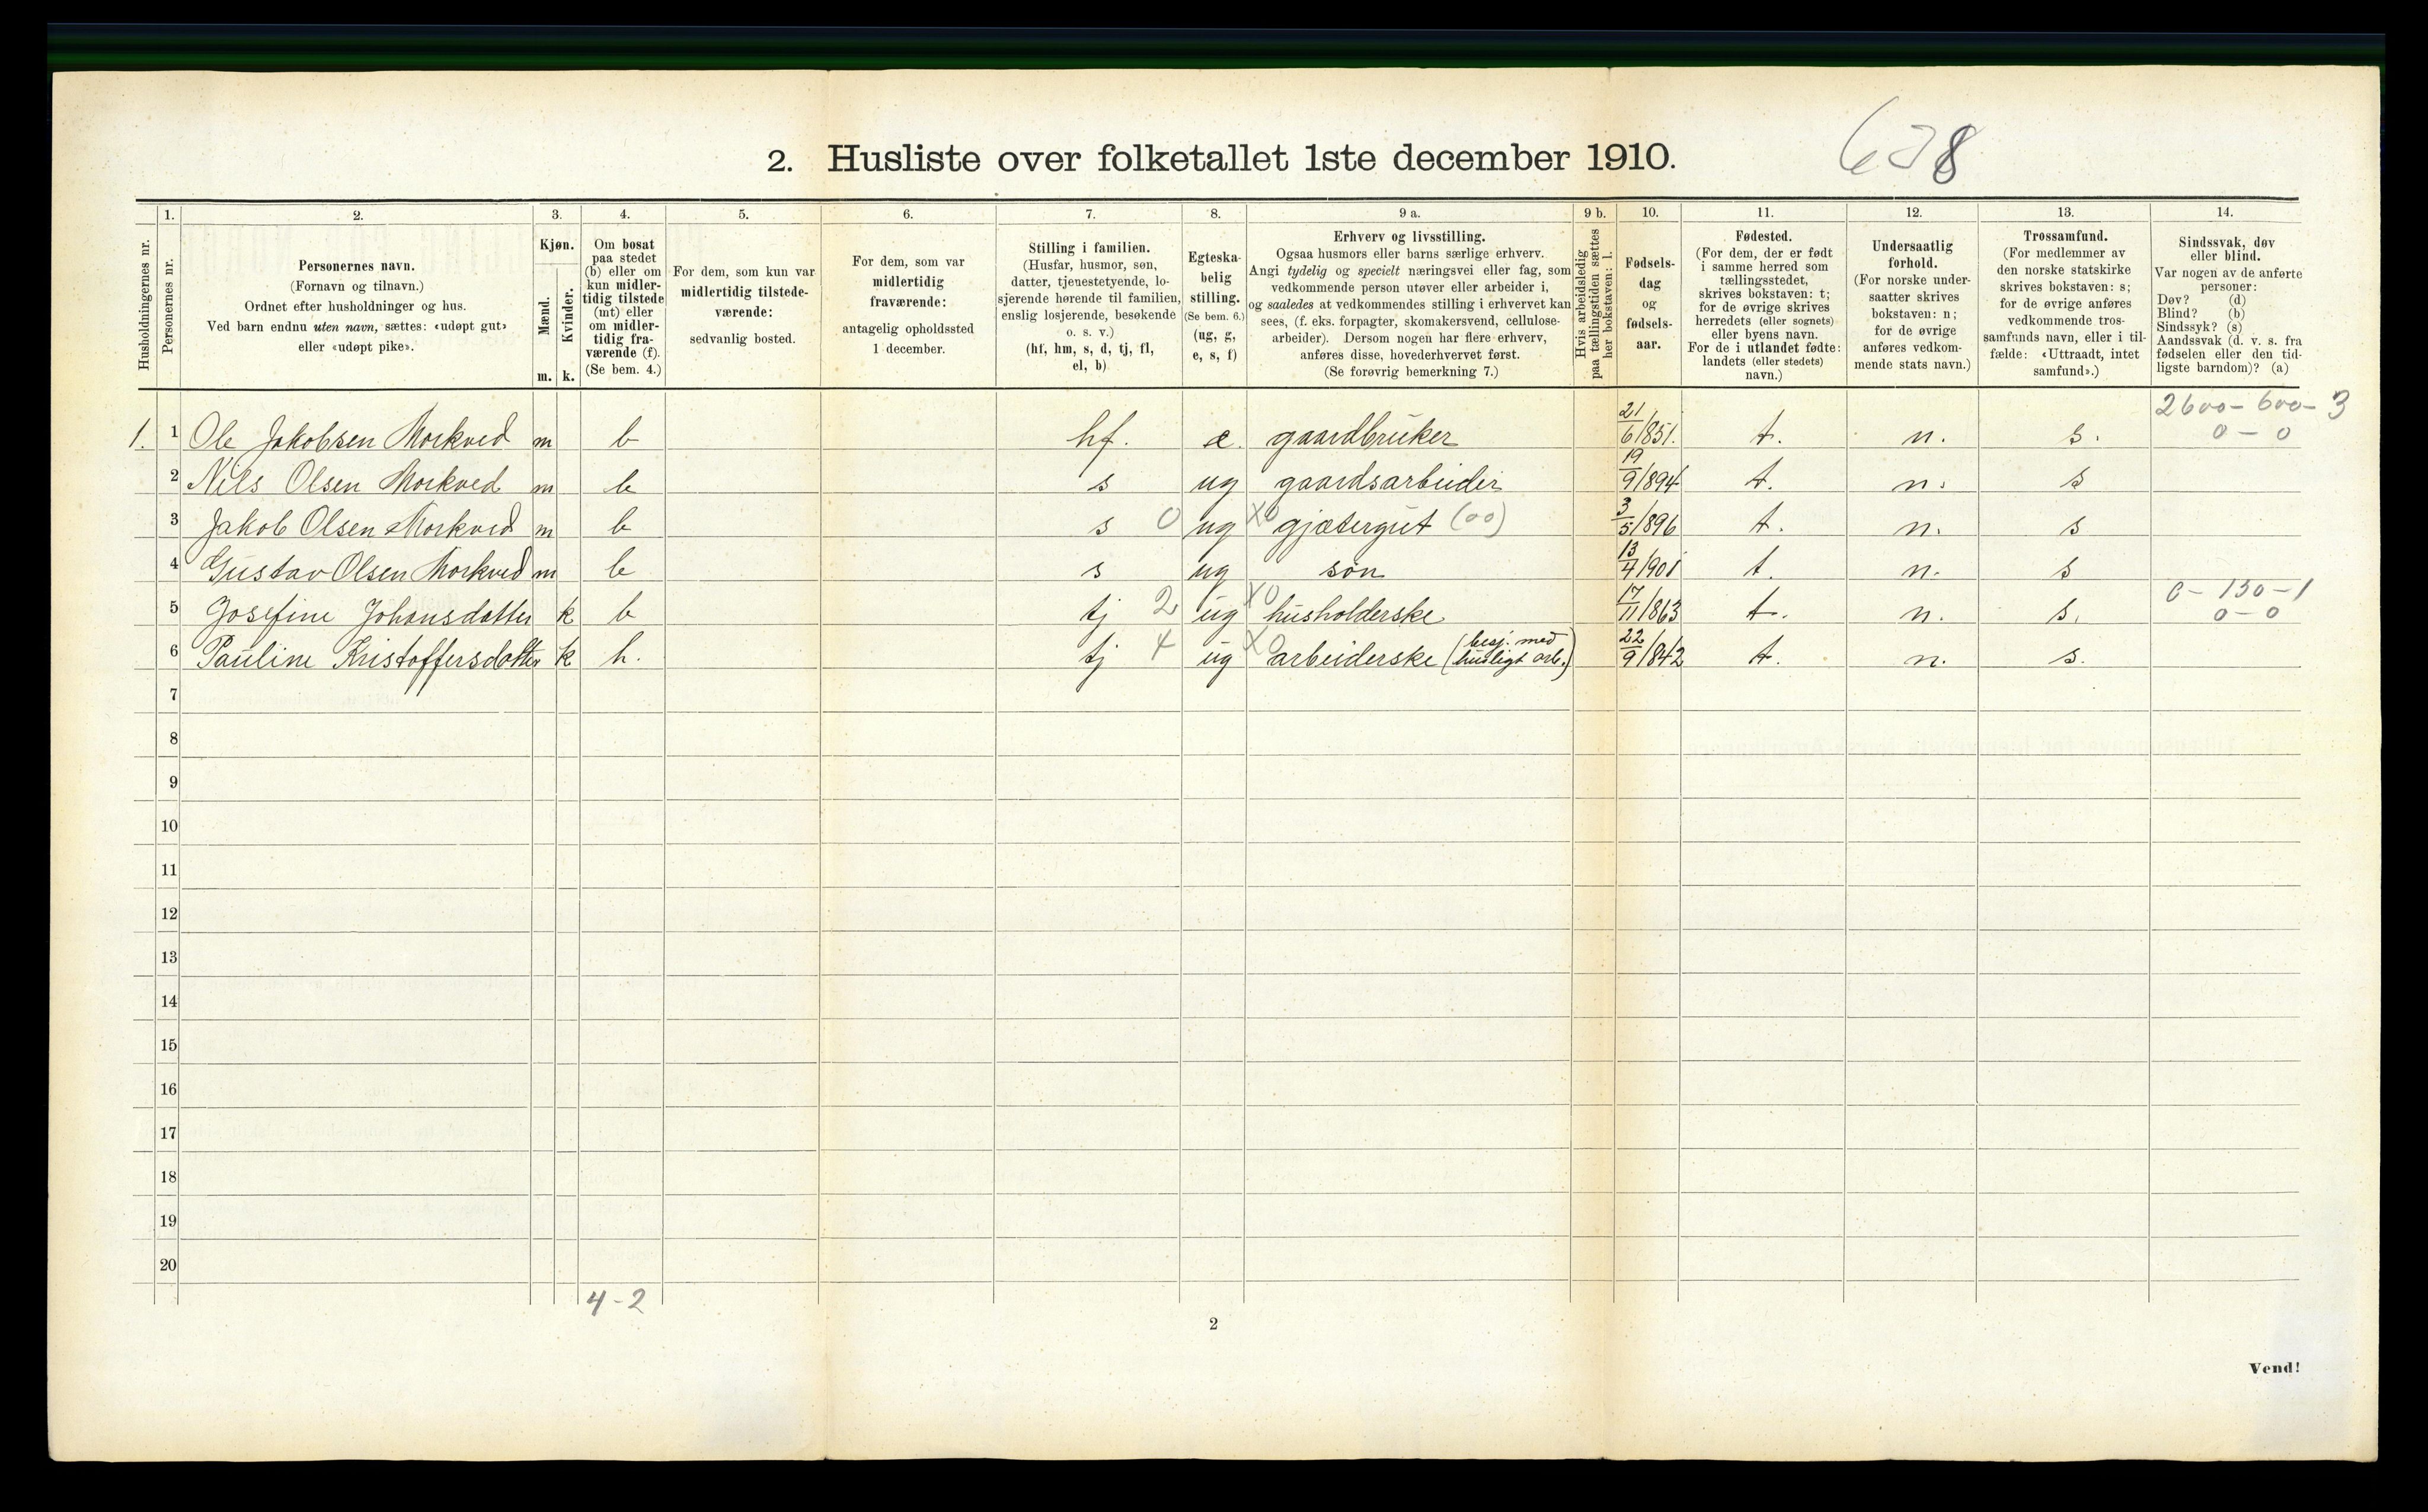 638
2. Husliste over folketallet 1ste december 1910.
Husholdningernes nr.
1. Personernes nr.
2. Personernes navn.
(Fornavn og tilnavn.)
Ordnet efter husholdninger og hus.
Ved barn endnu uten navn, sættes: «udøpt gut»
eller «udøpt pike».
3. Kjøn.
Mænd. m.
Kvinder. k.
4. Om bosat
paa stedet
(b) eller om
kun midler-
tidig tilstede
(mt) eller
om midler-
tidig fra-
værende (f).
(Se bem. 4.)
5. For dem, som kun var
midlertidig tilstede-
værende:
sedvanlig bosted.
6. For dem, som var
midlertidig
fraværende:
antagelig opholdssted
1 december.
7. Stilling i familien.
(Husfar, husmor, søn,
datter, tjenestetyende, lo-
sjerende hørende til familien,
enslig losjerende, besøkende
o. s. v.)
(hf, hm, s, d, tj, fl,
el, b)
8. Egteska-
belig
stilling.
(Se bem. 6.)
(ug, g,
e, s, f)
9 a. Erhverv og livsstilling.
Ogsaa husmors eller barns særlige erhverv.
Angi tydelig og specielt næringsvei eller fag, som
vedkommende person utøver eller arbeider i,
og saaledes at vedkommendes stilling i erhvervet kan
sees, (f. eks. forpagter, skomakersvend, cellulose-
arbeider). Dersom nogen har flere erhverv,
anføres disse, hovederhvervet først.
(Se forøvrig bemerkning 7.)
9 b. Hvis arbeidsledig
paa tællingstiden sættes
her bokstaven: l.
10. Fødsels-
dag
og
fødsels-
aar.
11. Fødested.
(For dem, der er født
i samme herred som
tællingsstedet,
skrives bokstaven: t;
for de øvrige skrives
herredets (eller sognets)
eller byens navn.
For de i utlandet fødte:
landets (eller stedets)
navn.)
12. Undersaatlig
forhold.
(For norske under-
saatter skrives
bokstaven: n;
for de øvrige
anføres vedkom-
mende stats navn.)
13. Trossamfund.
(For medlemmer av
den norske statskirke
skrives bokstaven: s;
for de øvrige anføres
vedkommende tros-
samfunds navn, eller i til-
fælde: «Uttraadt, intet
samfund».)
14. Sindssvak, døv
eller blind.
Var nogen av de anførte
personer:
Døv? (d)
Blind? (b)
Sindssyk? (s)
Aandssvak (d. v. s. fra
fødselen eller den tid-
ligste barndom)? (a)
2600 - 600 - 3
1. 1 Ole Jakobsen Morkved m b hf. e. gaardbruker 21/6/851. t. n. s. 0 - 0
2 Nils Olsen Morkved m b s ug gaardsarbeider 19/9/894 t. n. s
3 Jakob Olsen Morkved m b s 0 ug X0 gjætergut (00) 3/5/896 t. n. s
4 Gustav Olsen Morkved m b s ug søn 13/4/901 t. n. s
0 - 130 - 1
5 Josefine Johansdatter k b tj 2 ug X0 husholderske 17/11/863 t. n. s. 0 - 0
6 Pauline Kristoffersdatter k b. tj 4 ug X0 arbeiderske (besj. med husligt arb.) 22/9/842 t. n. s.
7
8
9
10
11
12
13
14
15
16
17
18
19
20
4 - 2
2
Vend!